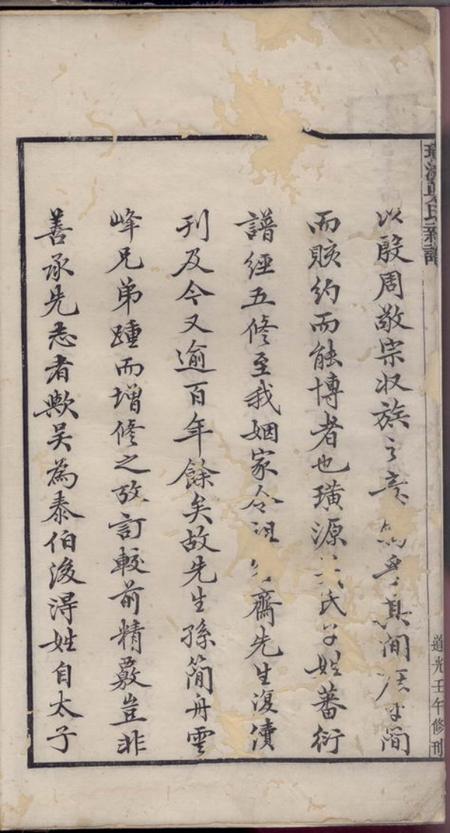 以殷周敬宗收族之
其簡
簡
而賅約而能博者也璜源吳氏子姓蕃衍
譜經五修至我姻家令祖
齋先生復續
刊及今又逾百年餘矣故先生孫簡舟雲
峰兄弟踵而增修之攷訂較前精覈豈非
善承先志者歟吳為泰伯後得姓自太子
璜源吳氏新譜
道光壬午修刊